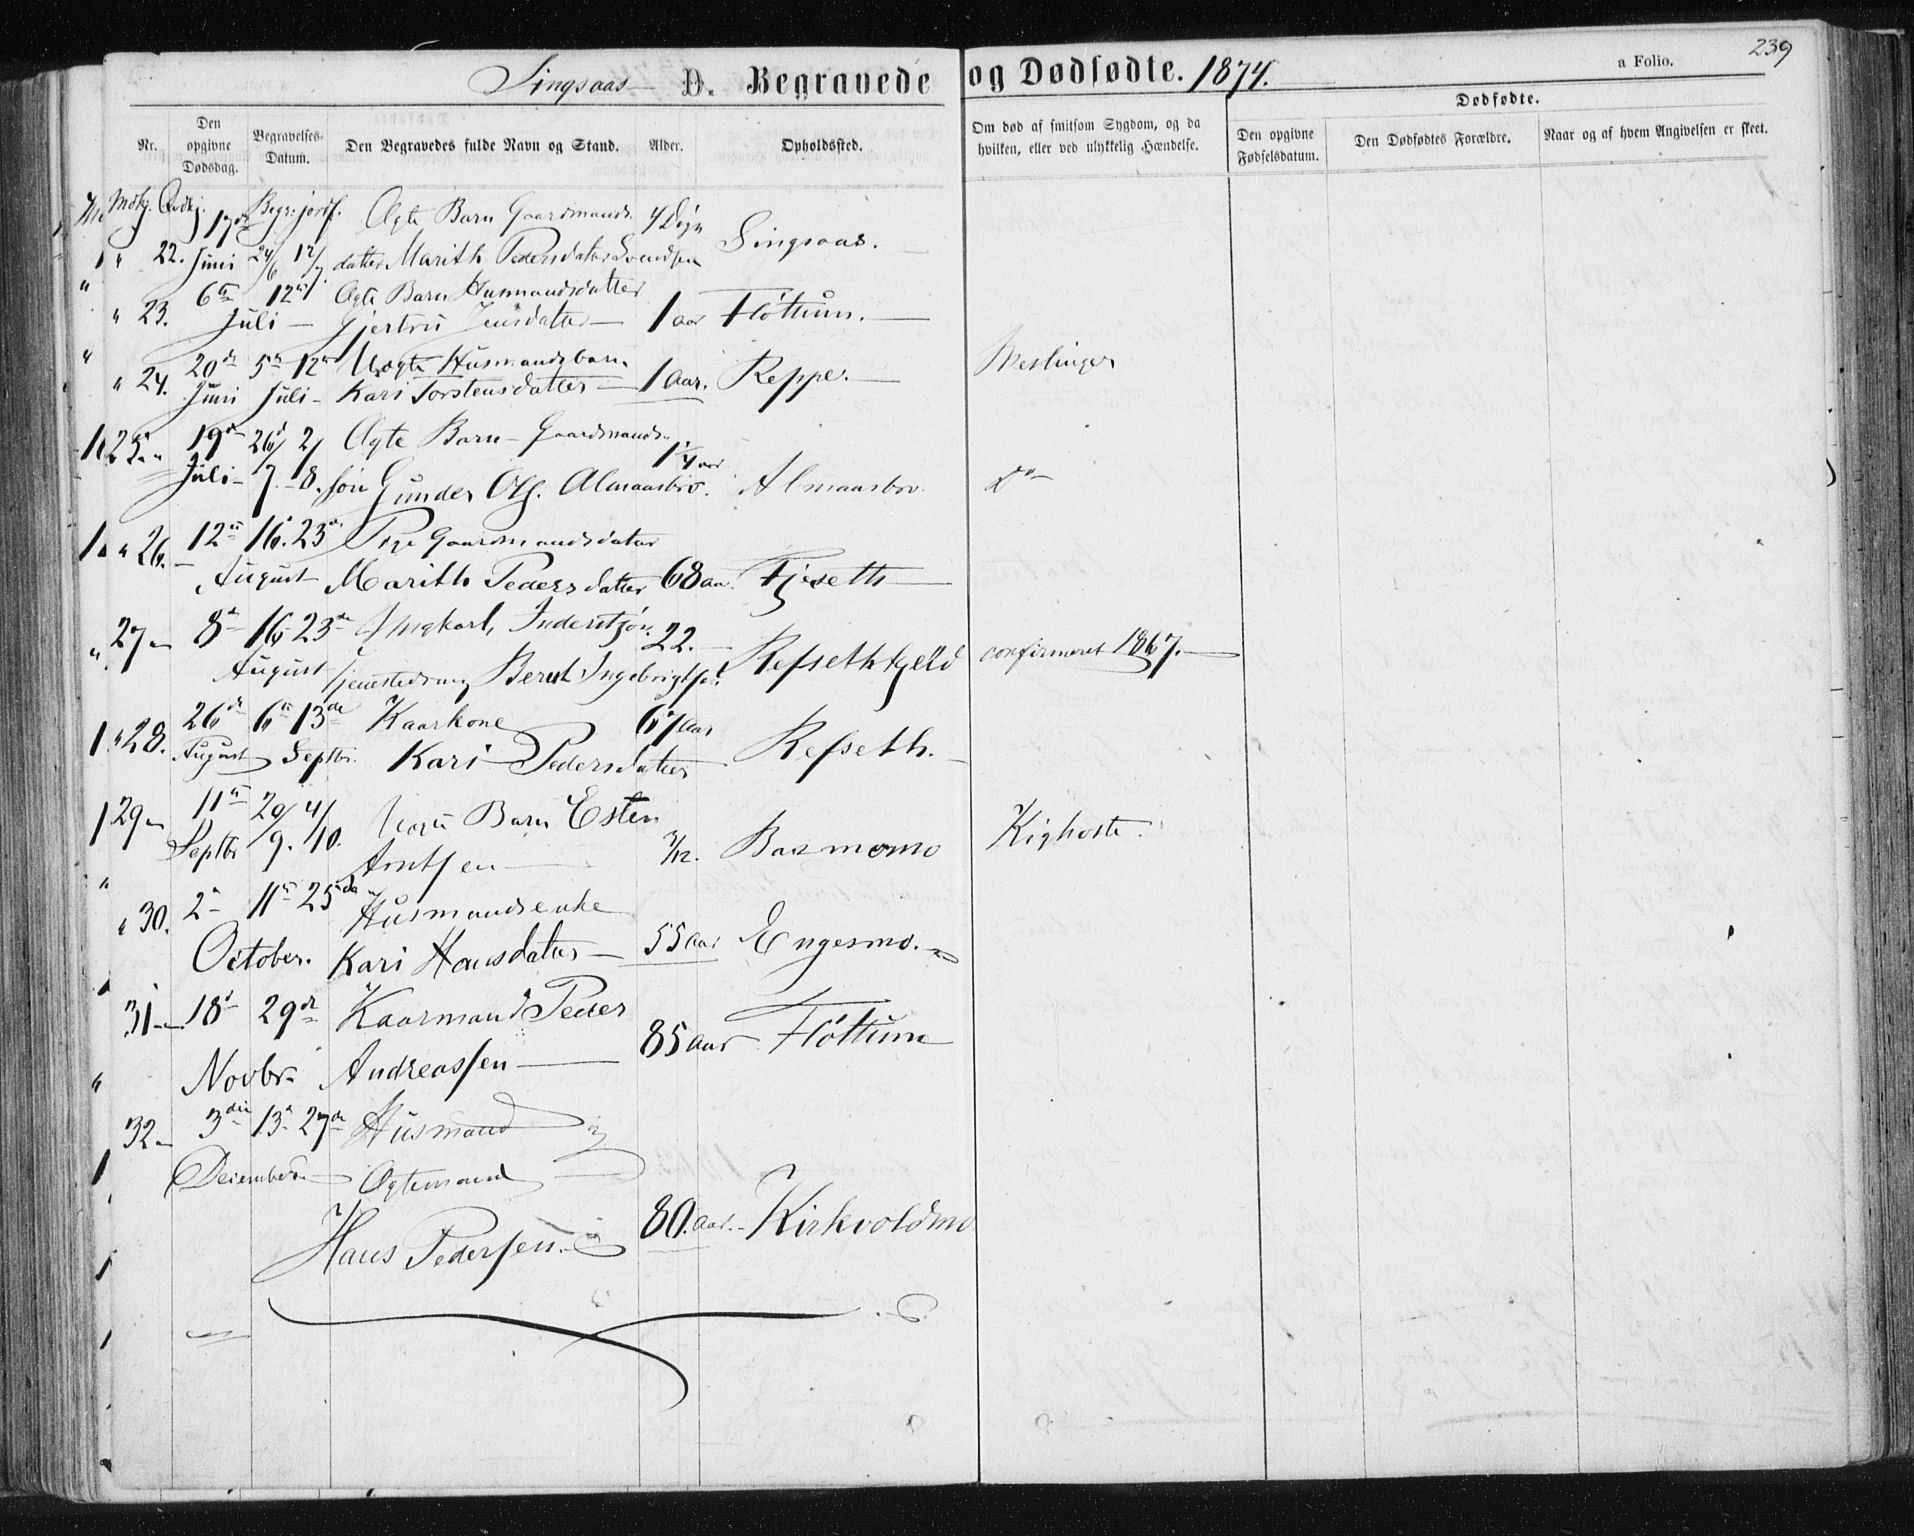 239
Singsaas D. Begravede og Dødfødte. 1874.
a Folio.
Nr.
Den opgivne Dødsdag.
Begravelses-Datum.
Den Begravedes fulde Navn og Stand.
Alder.
Opholdssted.
Om død af smitsom Sygdom, og da hvilken, eller ved ulykkelig Hændelse.
Dødfødte.
Den opgivne Fødselsdatum.
Den Dødfødtes Forældre.
Naar og af hvem Angivelsen er skeet.
Mdkj. Qvdkj. Begr: jordf.
17de Ægte Barn Gaardmands- 4 Døgn
22. Juni 24/6 12/7 datter Marith Pedersdatter Svendsen Singsaas.
6te 12te Ægte Barn Husmandsdatter
23. Juli Gjertru Jensdatter 1 aar Fløttum.
20de 5te 12te Uægte Husmandsbarn
24. Juni Juli Kari Torstensdatter 1 Aar. Reppe. Meslinger
25. 19de 26/ 2/ Ægte Barn Gaardmands-
Juli 7. 8. søn Gunder Ols. Almaasbro. 1 1/4 aar Almaasbro. Do
26. 12te 16. 23de Pige Gaardmandsdatter
August Marith Pedersdatter 68 aar. Fjeseth
27 8de 16 23de Ungkarl, Inderstjøn. 22.
August tjenestedreng Bernt Ingebrigtsen Refsethfjeld confirmeret 1867.
28. 26de 6te 13de Kaarkone 67 aar
August Septbr. Kari Pedersdatter Refseth.
29 11te 20/ 4/ Uægte Barn Esten
Septbr 9. 10. Arntsen 7/12. Baamomo Kighoste.
30. 2de 11te 25de Husmandsenke
October. Kari Hansdatter 55 aar Engesmo.
31 18de 29de Kaarmand Peder
Novbr Andreassen 85 aar Fløttum
32 3die 13de 27de Husmand og
December Ægtemand
Hans Pedersen. 80. aar. Kirkvoldmo